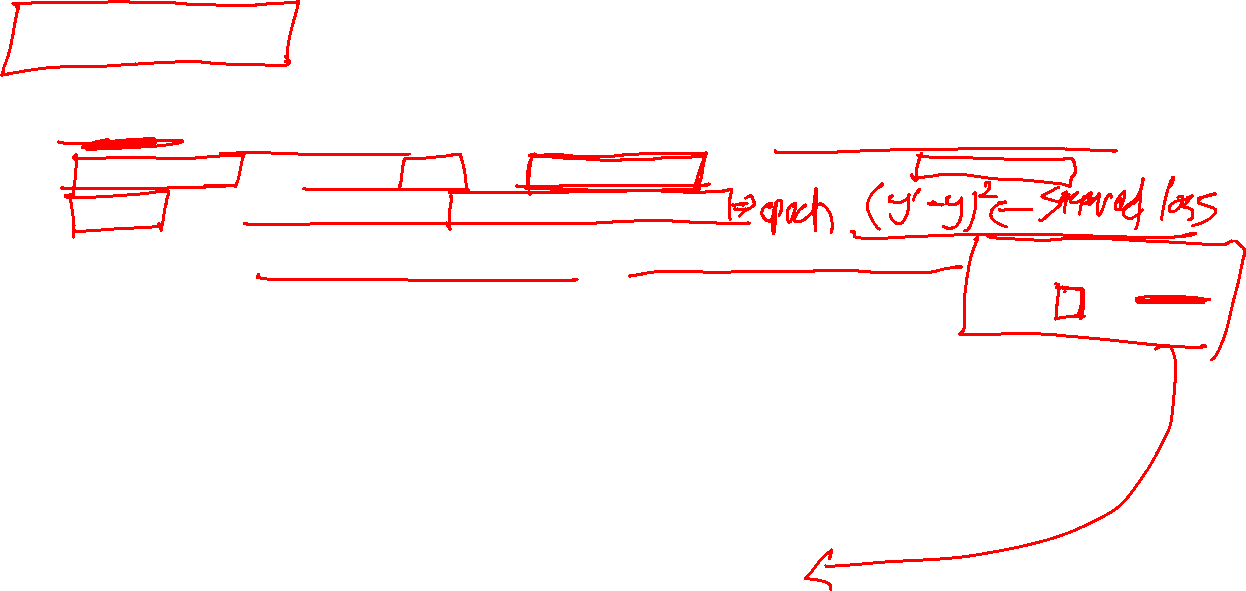 ⇒ epoch (y' - y)² ← squared loss